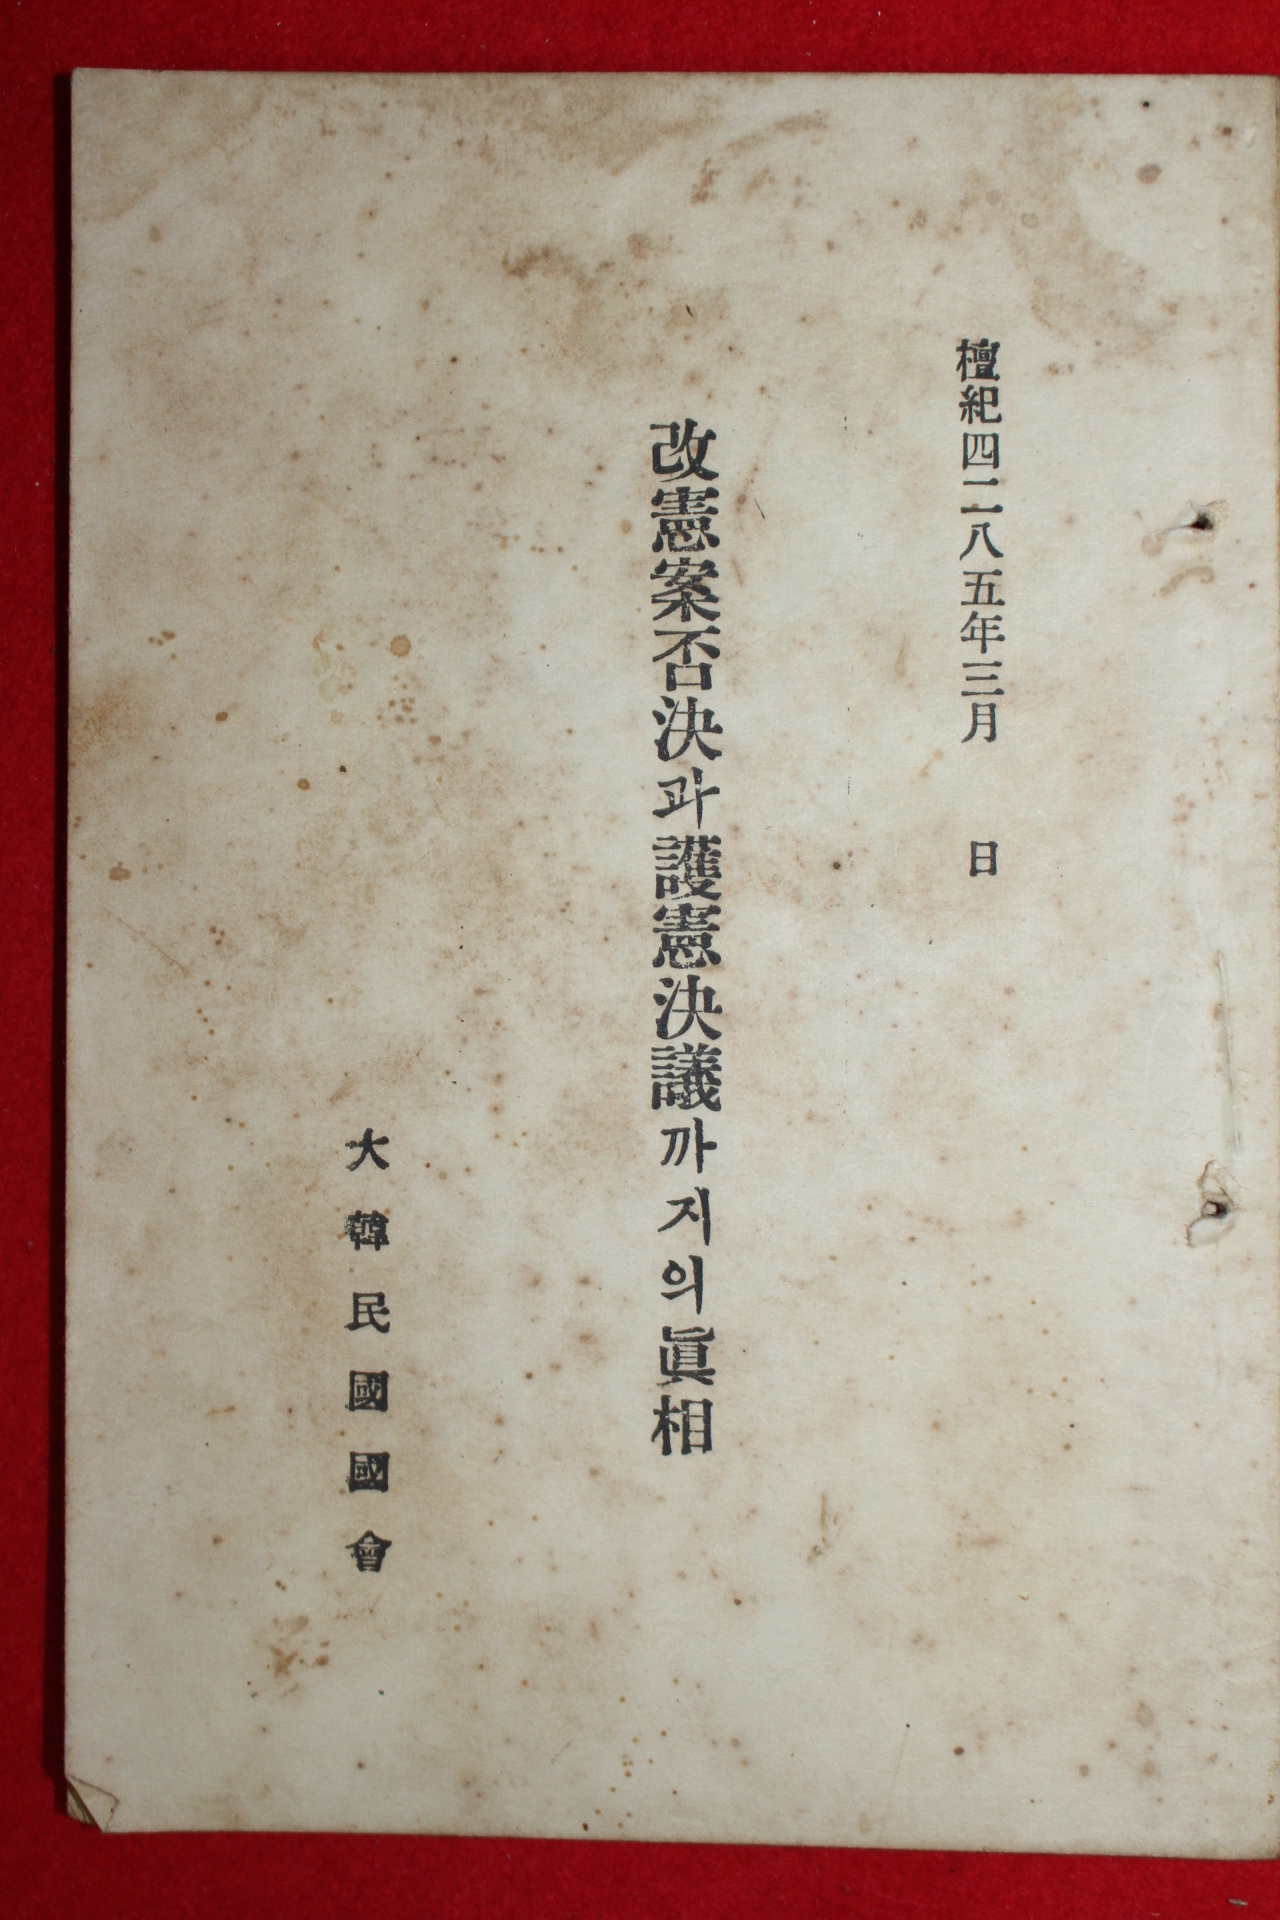 檀紀四二八五年三月 日
改憲案否決과護憲決議까지의眞相
大韓民國國會